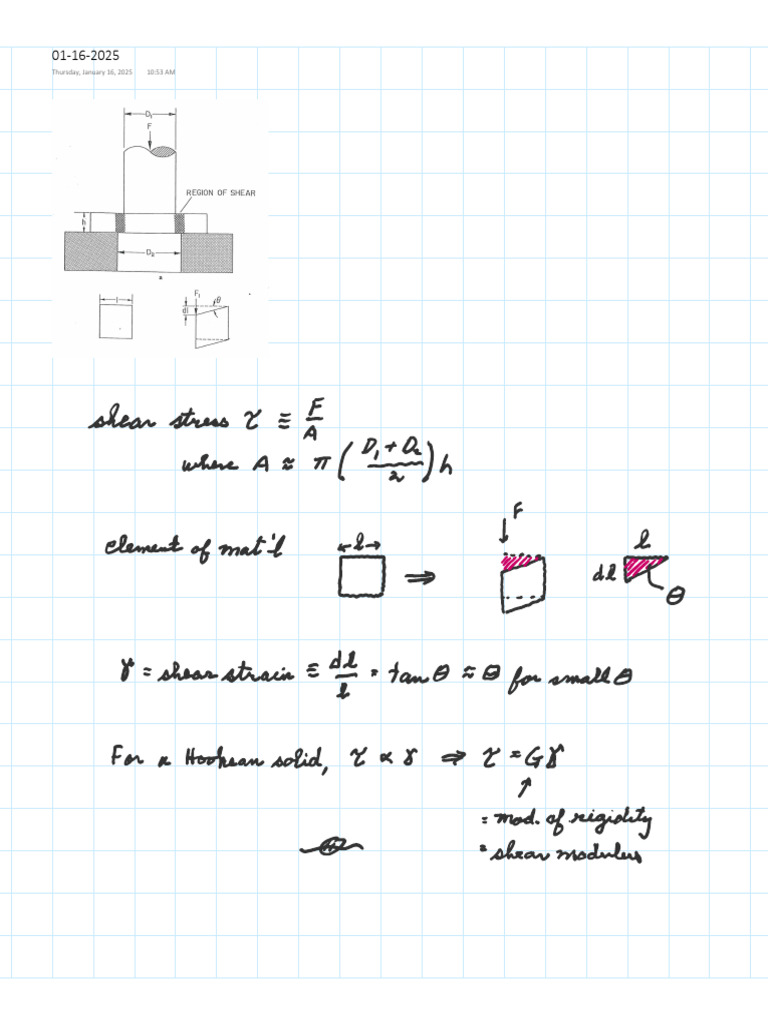 01-16-2025
Thursday, January 16, 2025 10:53 AM
D₁
F
REGION OF SHEAR
h
D₂
l
F₁
θ
dl
shear stress τ ≡ F/A
where A ≈ π ( (D₁ + D₂)/2 ) h
F
element of mat'l ←l→ ⇒ l
dl
θ
γ = shear strain ≡ dl/l = tan θ ≈ θ for small θ
For a Hookean solid, τ ∝ γ ⇒ τ = Gγ
↑
= mod. of rigidity
= shear modulus